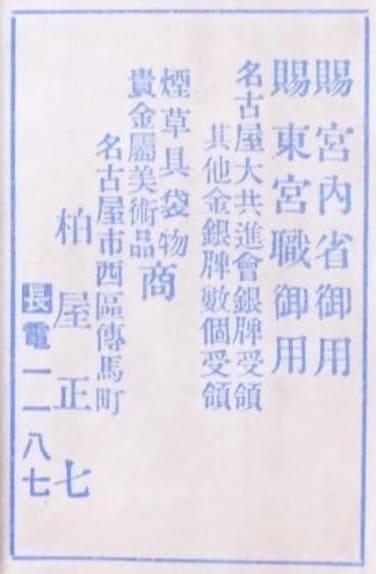 賜宮内省御用
賜東宮職御用
名古屋大共進會銀牌受領
其他金銀牌數個受領
煙草具袋物
貴金屬美術品
商
名古屋市西區傳馬町
柏屋正七
長電一一八七